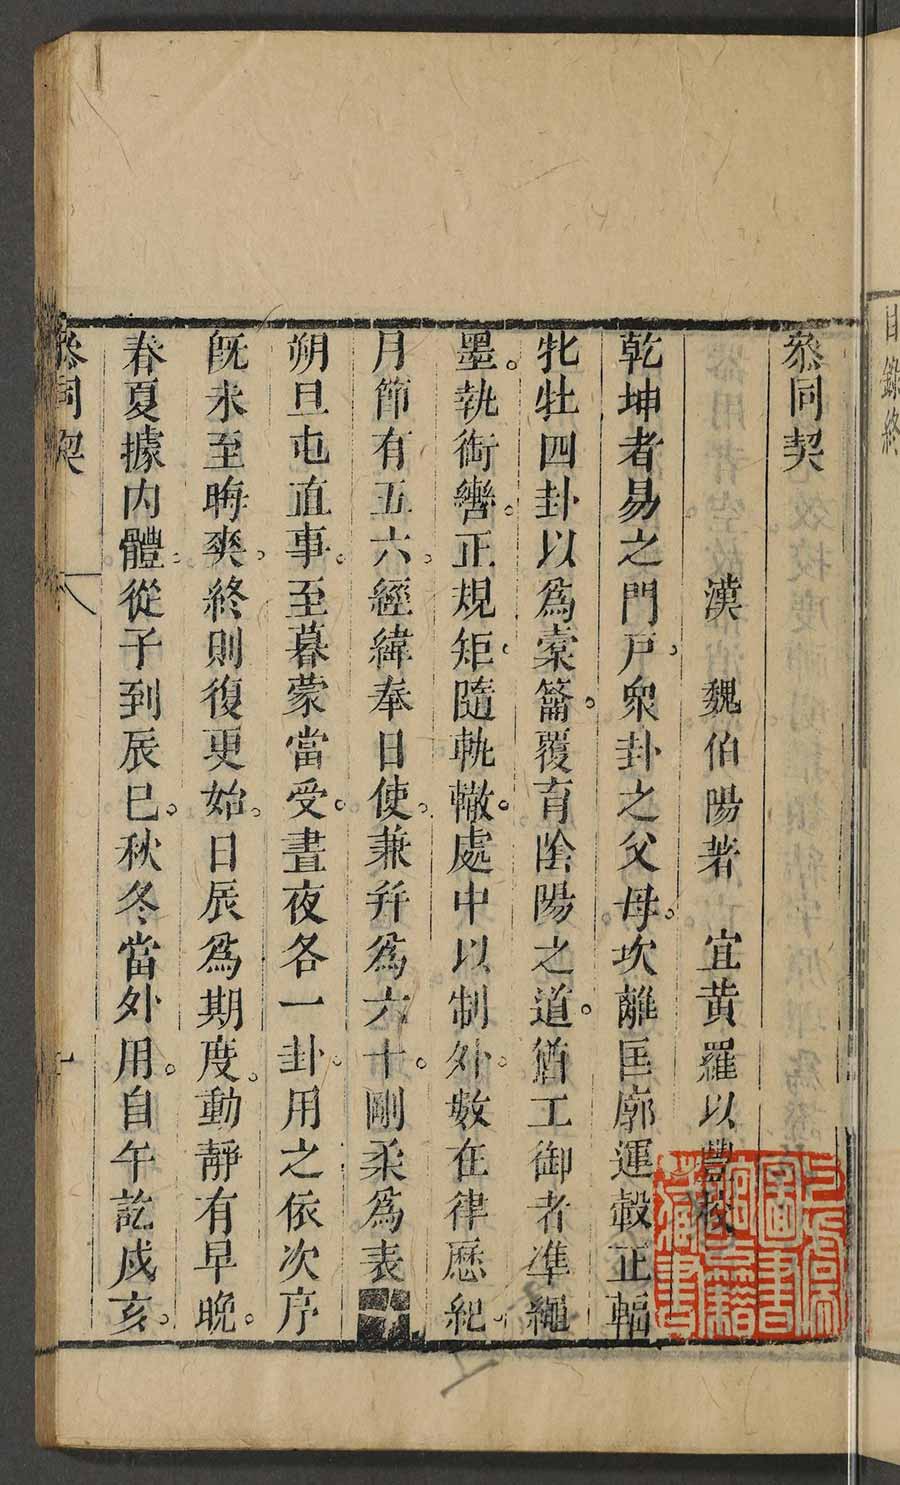 目錄終
叅同契
漢　魏伯陽著　宜黃羅以豐校
乾坤者易之門戶。衆卦之父母。坎離匡廓運轂正輻
牝牡四卦以爲橐籥。覆育陰陽之道。猶工御者準繩
墨。執銜轡。正規矩。隨軌轍。處中以制外。數在律歷紀。
月節有五六。經緯奉日使。兼并爲六十。剛柔爲表
朔旦屯直事。至暮蒙當受。晝夜各一卦。用之依次序
旣未至晦爽。終則復更始。日辰爲期度。動靜有早晚。
春夏據內體。從子到辰巳。秋冬當外用。自午訖戌亥。
叅同契　八　一